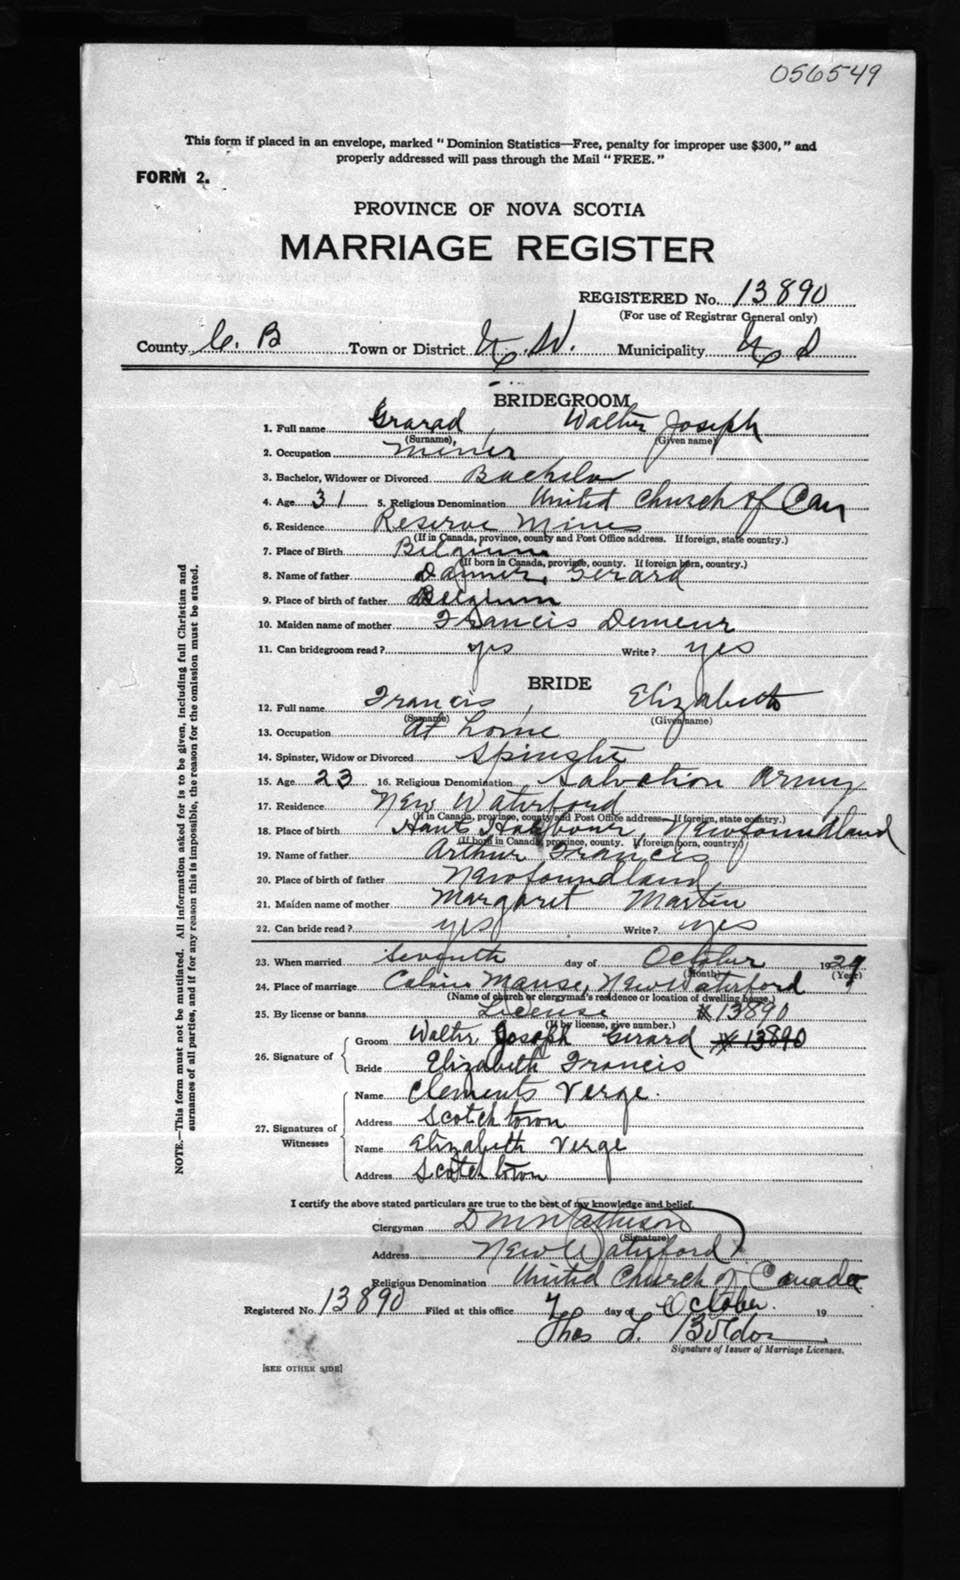 056549
This form if placed in an envelope, marked "Dominion Statistics—Free, penalty for improper use $300," and
properly addressed will pass through the Mail "FREE."
FORM 2.
PROVINCE OF NOVA SCOTIA
MARRIAGE REGISTER
REGISTERED No. 13890
(For use of Registrar General only)
County C. B Town or District N. W. Municipality
BRIDEGROOM
1. Full name Grarad, Walter Joseph
(Surname), (Given name)
2. Occupation Miner
3. Bachelor, Widower or Divorced Bachelor
4. Age 31 5. Religious Denomination United Church of Can
6. Residence Reserve Mines
(If in Canada, province, county and Post Office address. If foreign, state country.)
7. Place of Birth Belgium
(If born in Canada, province, county. If foreign born, country.)
8. Name of father Gerard
9. Place of birth of father Belgium
10. Maiden name of mother Francis Demeur
11. Can bridegroom read? yes Write? yes
BRIDE
12. Full name Francis, Elizabeth
(Surname) (Given name)
13. Occupation At home
14. Spinster, Widow or Divorced Spinster
15. Age 23 16. Religious Denomination Salvation Army
17. Residence New Waterford
(If in Canada, province, county and Post Office address—If foreign, state country.)
18. Place of birth Hants Harbour, Newfoundland
(If born in Canada, province, county. If foreign born, country.)
19. Name of father Arthur Francis
20. Place of birth of father Newfoundland
21. Maiden name of mother Margaret Martin
22. Can bride read? yes Write? yes
23. When married Seventh day of October 1929
(Month) (Year)
24. Place of marriage Calvin Manse, New Waterford
(Name of church or clergyman's residence or location of dwelling house.)
25. By license or banns License # 13890
(If by license, give number.)
26. Signature of Groom Walter Joseph Gerard # 13890
Bride Elizabeth Francis
27. Signatures of Witnesses Name Clements Verge.
Address Scotch town
Name Elizabeth Verge
Address Scotch town
I certify the above stated particulars are true to the best of my knowledge and belief.
Clergyman D M Matheson
(Signature)
Address New Waterford
Religious Denomination United Church of Canada
Registered No. 13890 Filed at this office 7 day of October. 19
Thos L.
Signature of Issuer of Marriage Licenses.
[SEE OTHER SIDE]
NOTE.—This form must not be mutilated. All information asked for is to be given, including full Christian and
surnames of all parties, and if for any reason this is impossible, the reason for the omission must be stated.